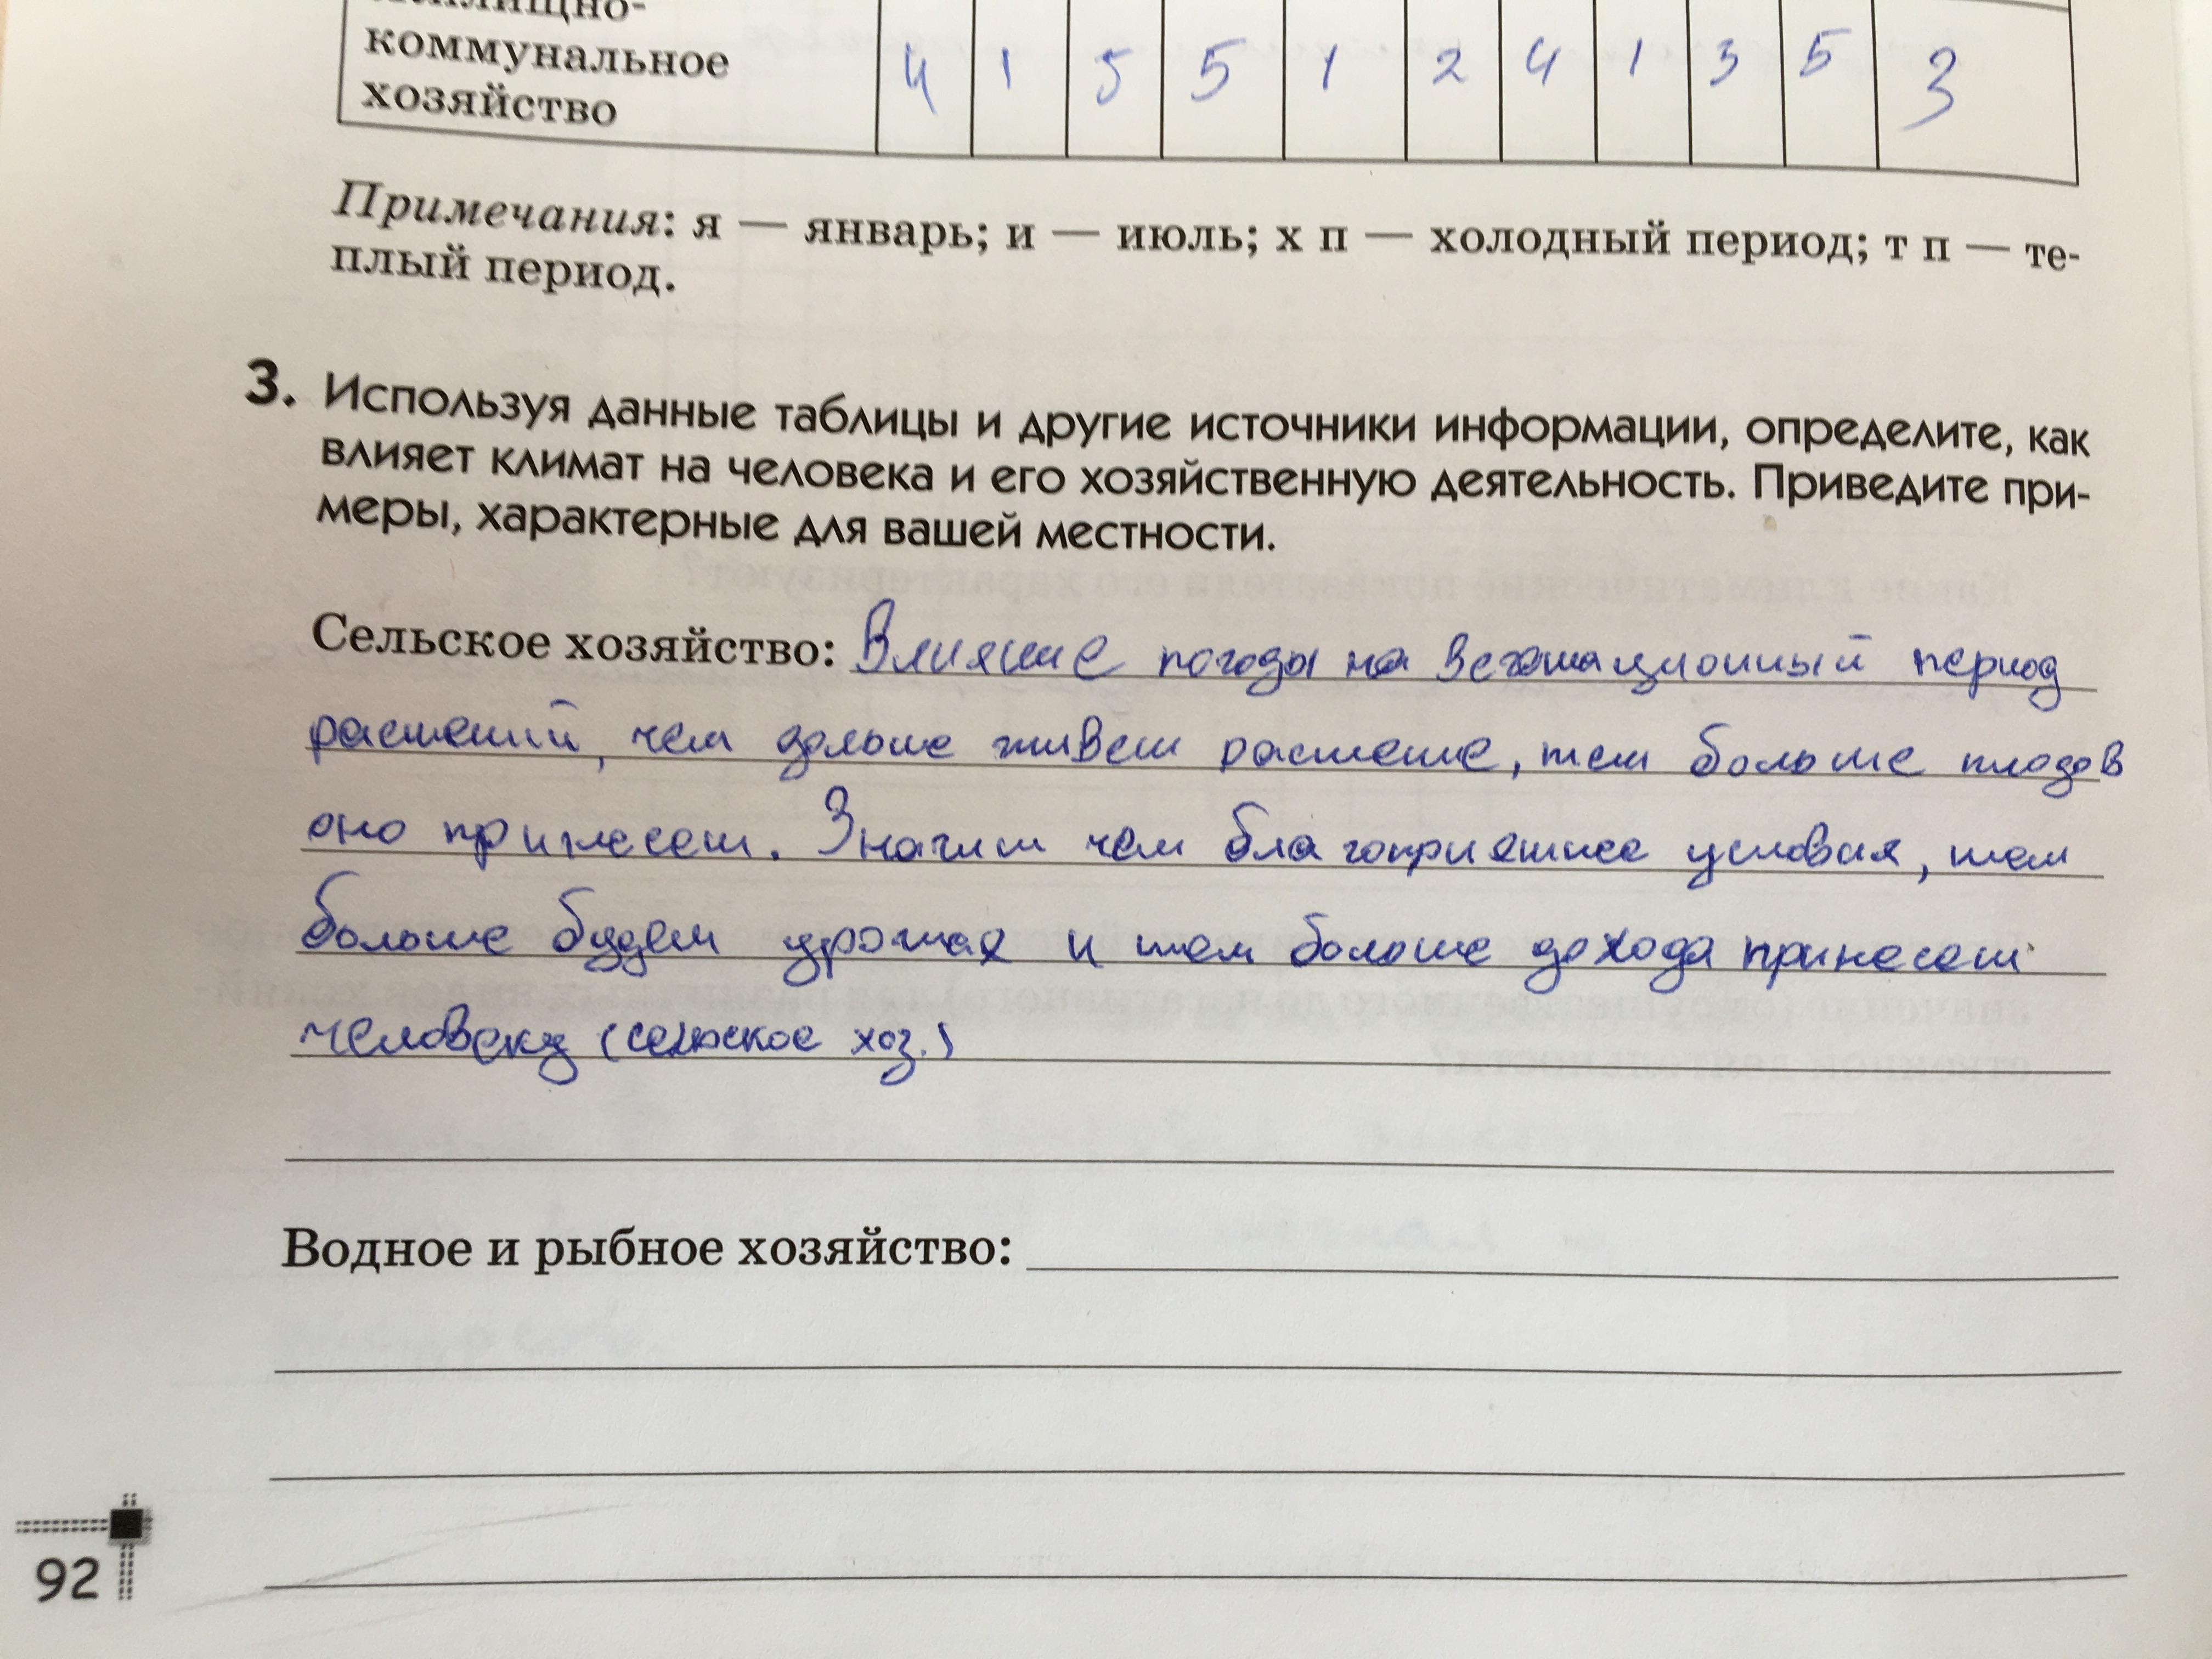 жилищно-
коммунальное
хозяйство 4 1 5 5 1 2 4 1 3 5 3
Примечания: я — январь; и — июль; х п — холодный период; т п — те-
плый период.
3. Используя данные таблицы и другие источники информации, определите, как
влияет климат на человека и его хозяйственную деятельность. Приведите при-
меры, характерные для вашей местности.
Сельское хозяйство: Влияние погоды на вегетационный период
растений, чем дольше живет растение, тем больше плодов
оно принесет. Значит чем благоприятнее условия, тем
больше будет урожая и тем больше дохода принесет
человеку (сельское хоз.)
Водное и рыбное хозяйство:
92